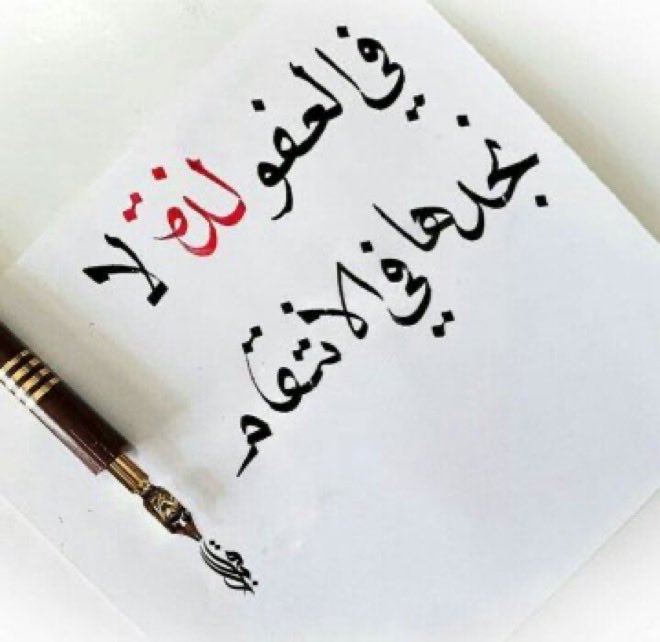 في العفو لذة لا
نجدها في الانتقام